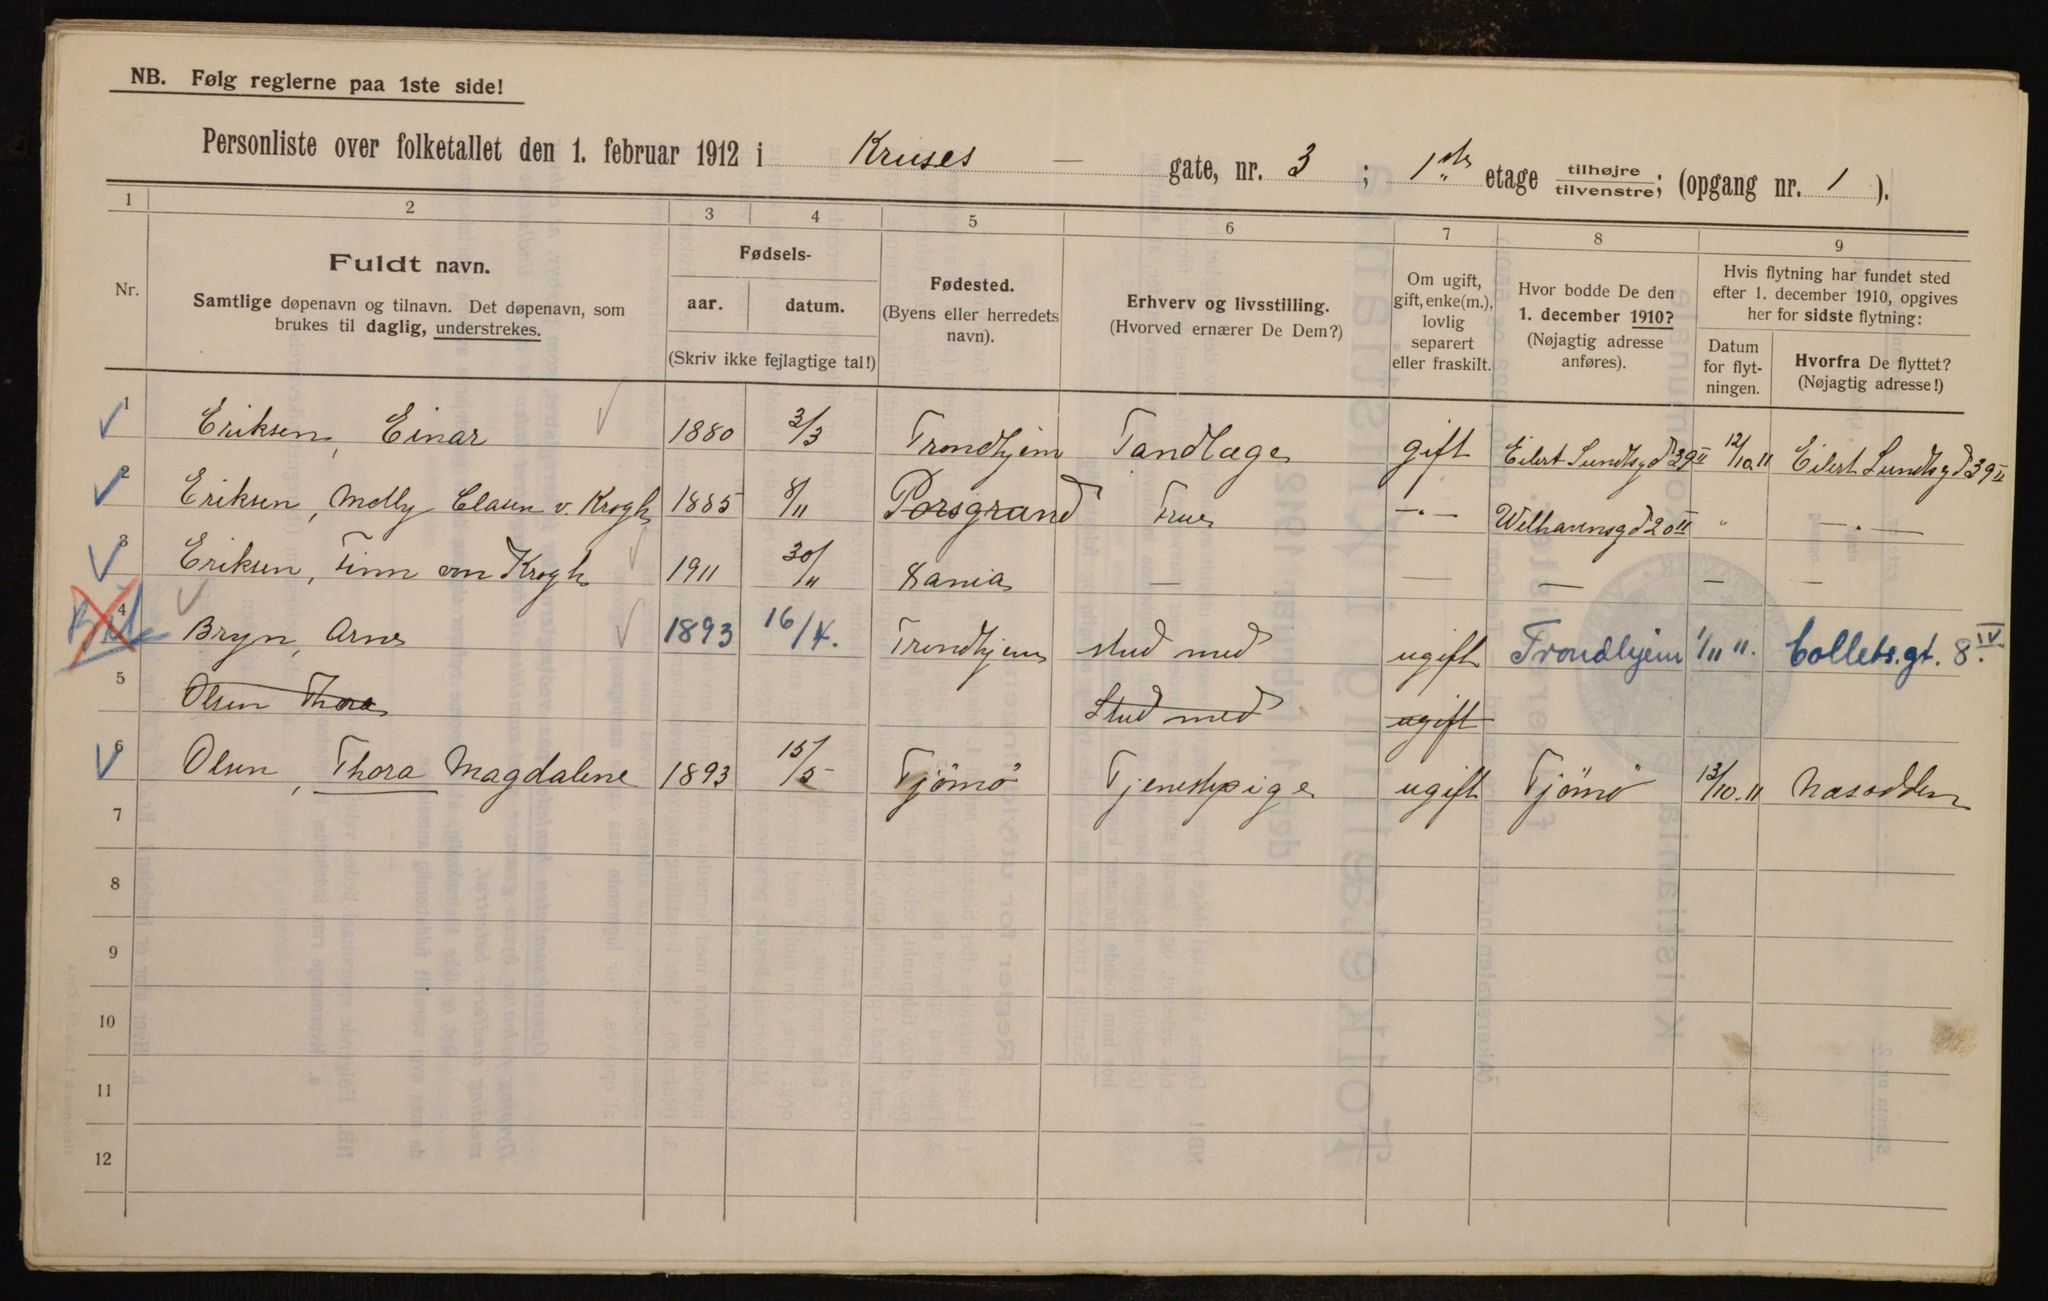 NB. Følg reglerne paa 1ste side!
Personliste over folketallet den 1. februar 1912 i Kruses — gate, nr. 3 ; 1ste etage tilhøjre tilvenstre; (opgang nr. 1 ).
1 2 3 4 5 6 7 8 9
Nr.
Fuldt navn.
Samtlige døpenavn og tilnavn. Det døpenavn, som
brukes til daglig, understrekes.
Fødsels-
aar. datum.
(Skriv ikke fejlagtige tal!)
Fødested.
(Byens eller herredets
navn).
Erhverv og livsstilling.
(Hvorved ernærer De Dem?)
Om ugift,
gift, enke(m.),
lovlig
separert
eller fraskilt.
Hvor bodde De den
1. december 1910?
(Nøjagtig adresse
anføres).
Hvis flytning har fundet sted
efter 1. december 1910, opgives
her for sidste flytning:
Datum
for flyt-
ningen.
Hvorfra De flyttet?
(Nøjagtig adresse!)
1 Eriksen, Einar 1880 3/3 Trondhjem Tandlæge gift Eilert Sundtsgd 39 II 12/10.11 Eilert Sundtsgd 39 II
2 Eriksen, Molly Claun v. Krogh 1885 8/11 Porsgrund Frue —·— Welhavnsgd 20 II " —·—
3 Eriksen, Finn von Krogh 1911 30/11 Kania — — — — —
4 Bryn, Arne 1893 16/4. Trondhjem stud med ugift Trondhjem 1/11 11. Collets.gt. 8 IV.
5 Olsen Thora Stud med ugift
6 Olsen, Thora Magdalene 1893 15/5 Tjömö Tjenestpige ugift Tjömö 13/10.11 Næsodden
7
8
9
10
11
12